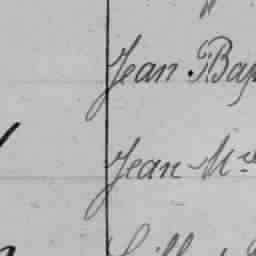 Jean Bap
Jean-M